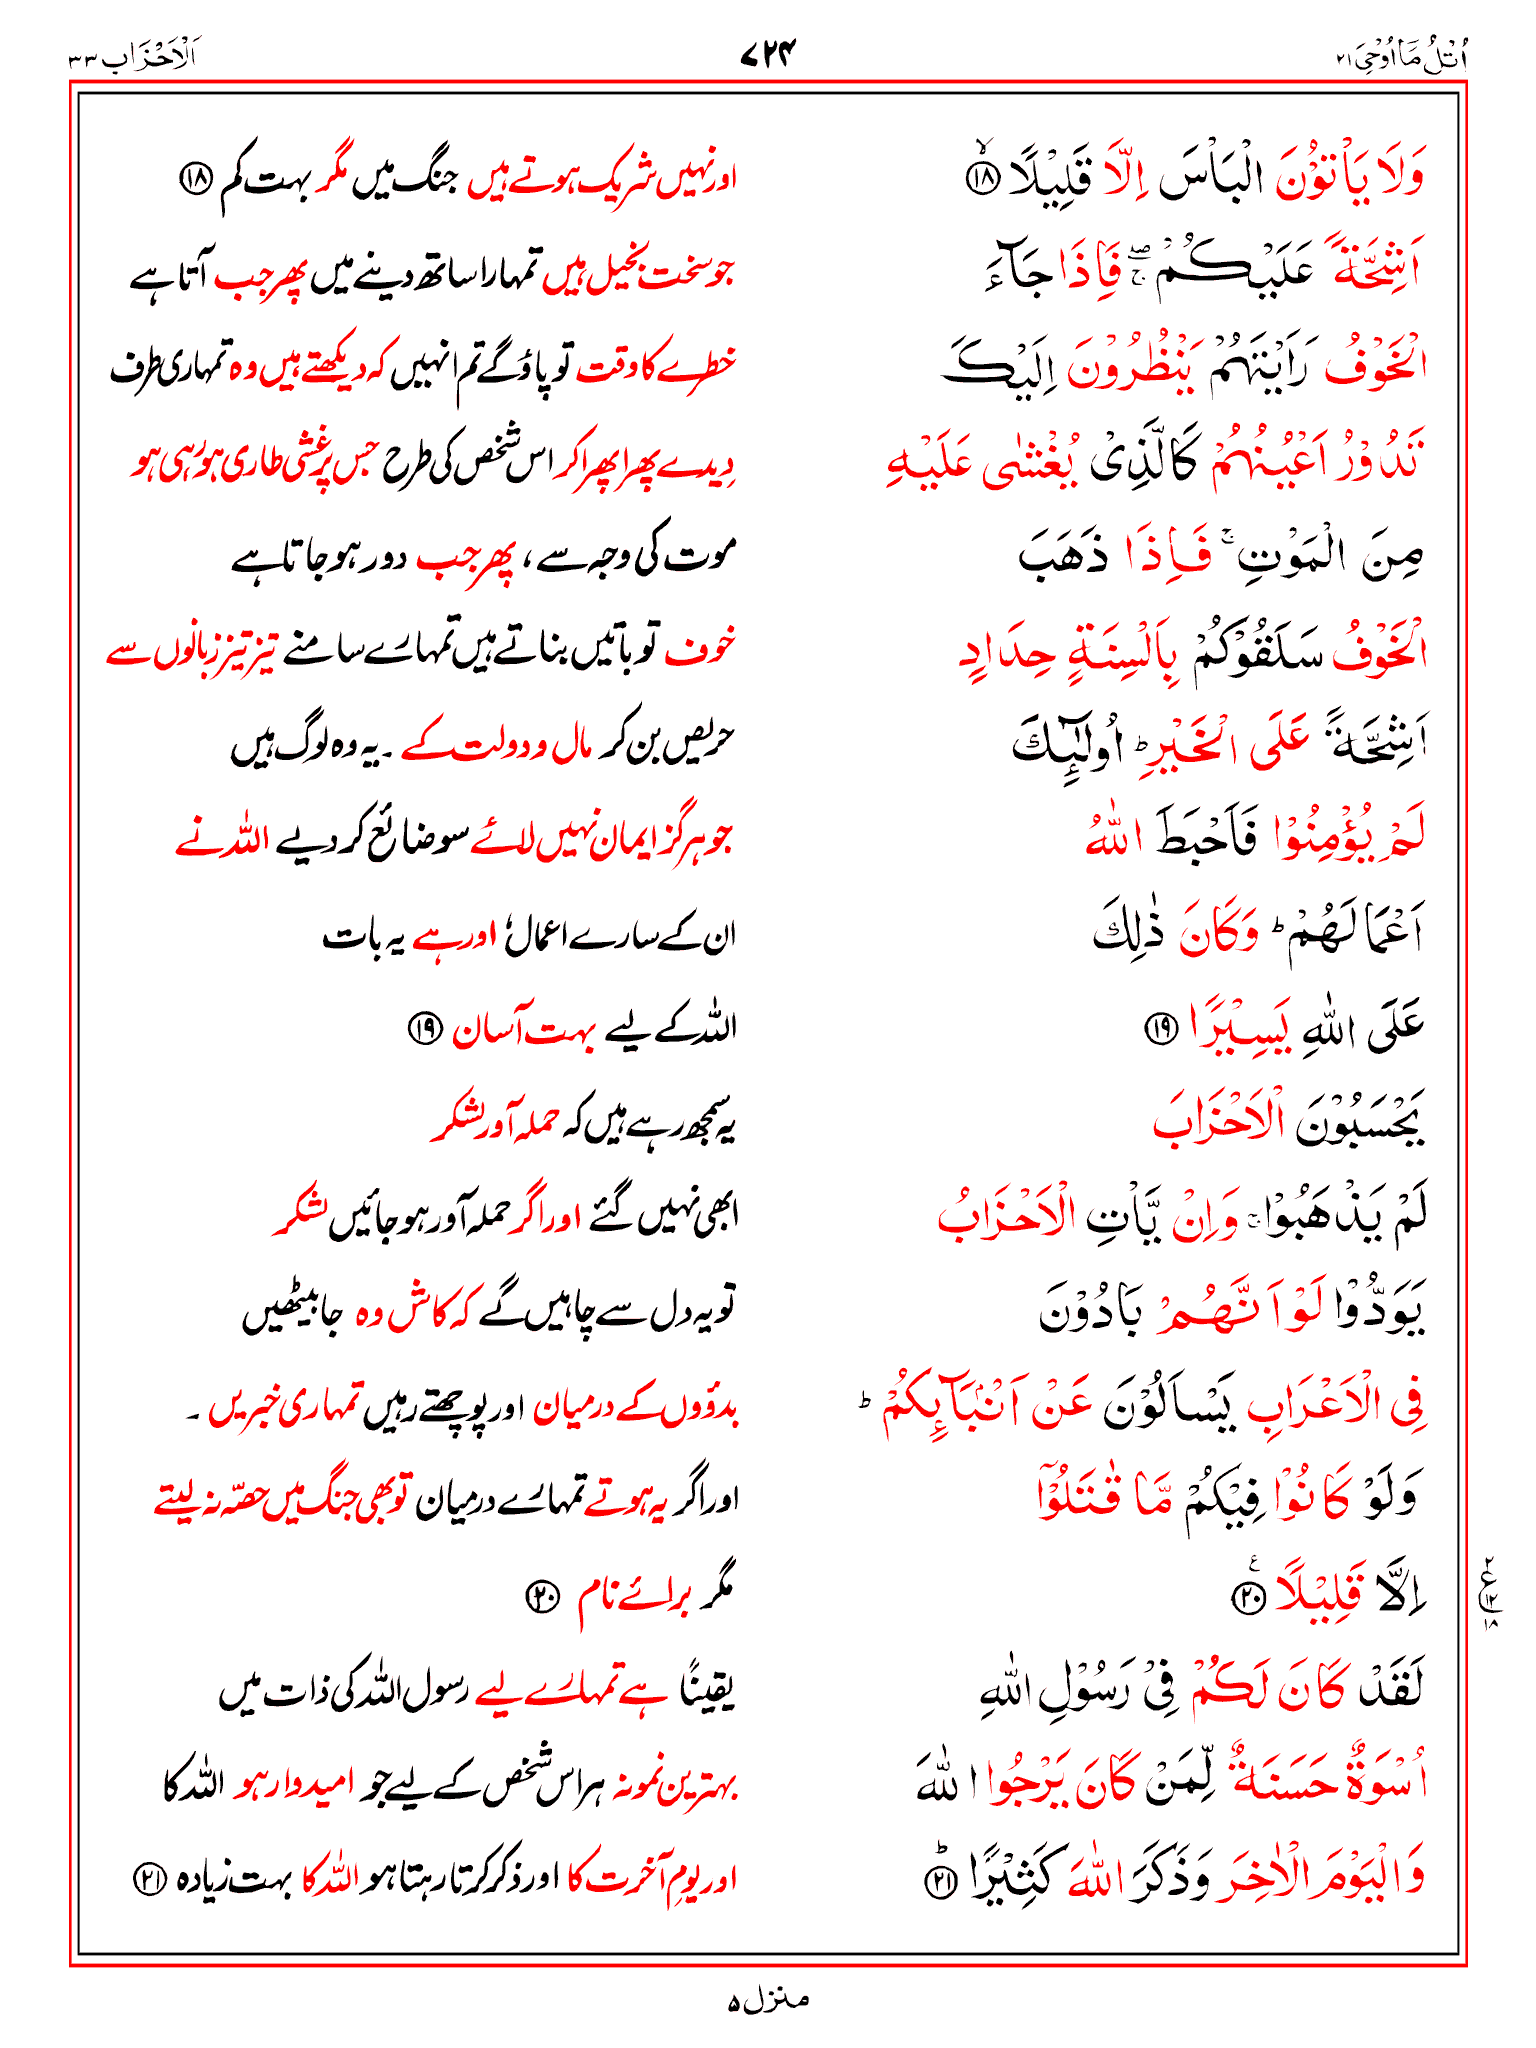 اُتْلُ مَاۤ اُوْحِيَ ۲۱
۷۲۴
اَلْاَحْزَاب ۳۳
وَلَا يَاْتُوْنَ الْبَاْسَ اِلَّا قَلِيْلًا ۙ ۱۸
اور نہیں شریک ہوتے ہیں جنگ میں مگر بہت کم ۱۸
اَشِحَّةً عَلَيْكُمْ ۖۚ فَاِذَا جَآءَ
جو سخت بخیل ہیں تمہارا ساتھ دینے میں پھر جب آتا ہے
الْخَوْفُ رَاَيْتَهُمْ يَنْظُرُوْنَ اِلَيْكَ
خطرے کا وقت تو پاؤ گے تم انہیں کہ دیکھتے ہیں وہ تمہاری طرف
تَدُوْرُ اَعْيُنُهُمْ كَالَّذِيْ يُغْشٰى عَلَيْهِ
دِیدے پھرا پھرا کر اس شخص کی طرح جس پر غشی طاری ہو رہی ہو
مِنَ الْمَوْتِ ۚ فَاِذَا ذَهَبَ
موت کی وجہ سے، پھر جب دور ہو جاتا ہے
الْخَوْفُ سَلَقُوْكُمْ بِاَلْسِنَةٍ حِدَادٍ
خوف تو باتیں بناتے ہیں تمہارے سامنے تیز تیز زبانوں سے
اَشِحَّةً عَلَى الْخَيْرِ ؕ اُولٰٓئِكَ
حریص بن کر مال و دولت کے ۔ یہ وہ لوگ ہیں
لَمْ يُؤْمِنُوْا فَاَحْبَطَ اللّٰهُ
جو ہرگز ایمان نہیں لائے سو ضائع کر دیے اللہ نے
اَعْمَالَهُمْ ؕ وَكَانَ ذٰلِكَ
ان کے سارے اعمال ٗ اور ہے یہ بات
عَلَى اللّٰهِ يَسِيْرًا ۱۹
اللہ کے لیے بہت آسان ۱۹
يَحْسَبُوْنَ الْاَحْزَابَ
یہ سمجھ رہے ہیں کہ حملہ آور لشکر
لَمْ يَذْهَبُوْا ۚ وَاِنْ يَّاْتِ الْاَحْزَابُ
ابھی نہیں گئے اور اگر حملہ آور ہو جائیں لشکر
يَوَدُّوْا لَوْ اَنَّهُمْ بَادُوْنَ
تو یہ دل سے چاہیں گے کہ کاش وہ جا بیٹھیں
فِي الْاَعْرَابِ يَسْاَلُوْنَ عَنْ اَنْۢبَآئِكُمْ ؕ
بدؤوں کے درمیان اور پوچھتے رہیں تمہاری خبریں ۔
وَلَوْ كَانُوْا فِيْكُمْ مَّا قٰتَلُوْۤا
اور اگر یہ ہوتے تمہارے درمیان تو بھی جنگ میں حصّہ نہ لیتے
اِلَّا قَلِيْلًا ۲۰ ع
مگر برائے نام ۲۰
۲ ع ۱۲ ۱۸
لَقَدْ كَانَ لَكُمْ فِيْ رَسُوْلِ اللّٰهِ
یقیناً ہے تمہارے لیے رسول اللہ کی ذات میں
اُسْوَةٌ حَسَنَةٌ لِّمَنْ كَانَ يَرْجُوا اللّٰهَ
بہترین نمونہ ہر اس شخص کے لیے جو امیدوار ہو اللہ کا
وَالْيَوْمَ الْاٰخِرَ وَذَكَرَ اللّٰهَ كَثِيْرًا ؕ ۲۱
اور یومِ آخرت کا اور ذکر کرتا رہتا ہو اللہ کا بہت زیادہ ۲۱
منزل ۵